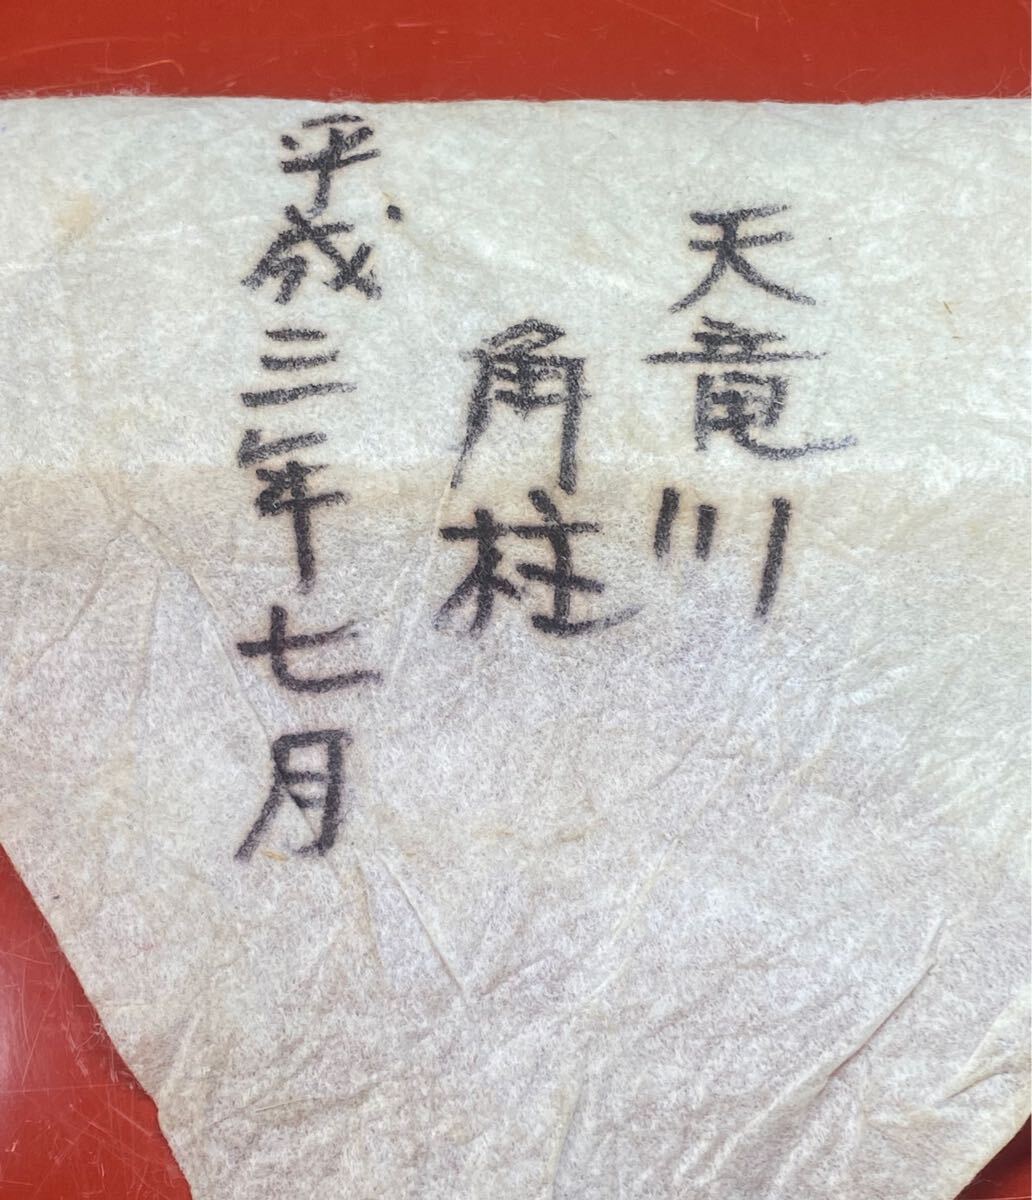 天竜川
角柱
平成三年七月